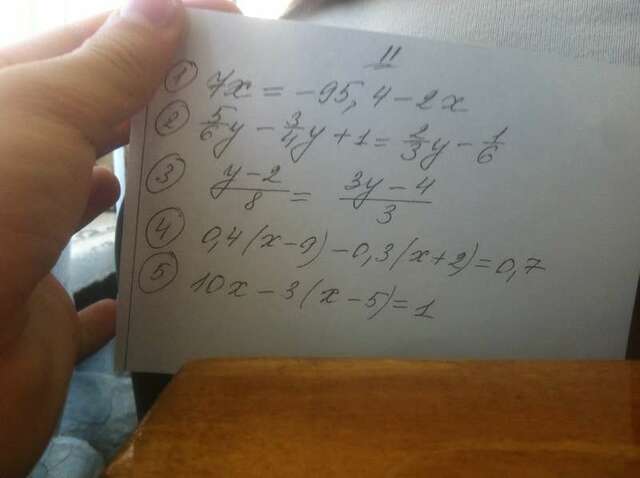 11
① 7x = -95,4 - 2x
② 5/6 y - 3/4 y + 1 = 2/3 y - 1/6
③ y-2/8 = 3y-4/3
④ 0,4(x-9)-0,3(x+2)=0,7
⑤ 10x-3(x-5)=1